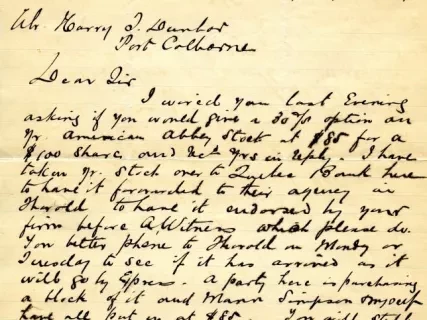 Mr. Harry J. Dunbar
Port Colborne
Dear Sir
I wired you last Evening
asking if you would give a 30 option on
Yr. American Abbey Stock at $85 for a
$100 Share, and Yrs in reply. I have
taken Yr. Stock over to Quebec Bank here
to have it forwarded to their agency in
Thorold to have it endorsed by your
firm before A Witness which please do.
You better phone to Thorold on Monday or
Tuesday to see if it has arrived as it
will go by Express. A party here is purchasing
a block of it and Mann Simpson myself
have all put in at $85. You will